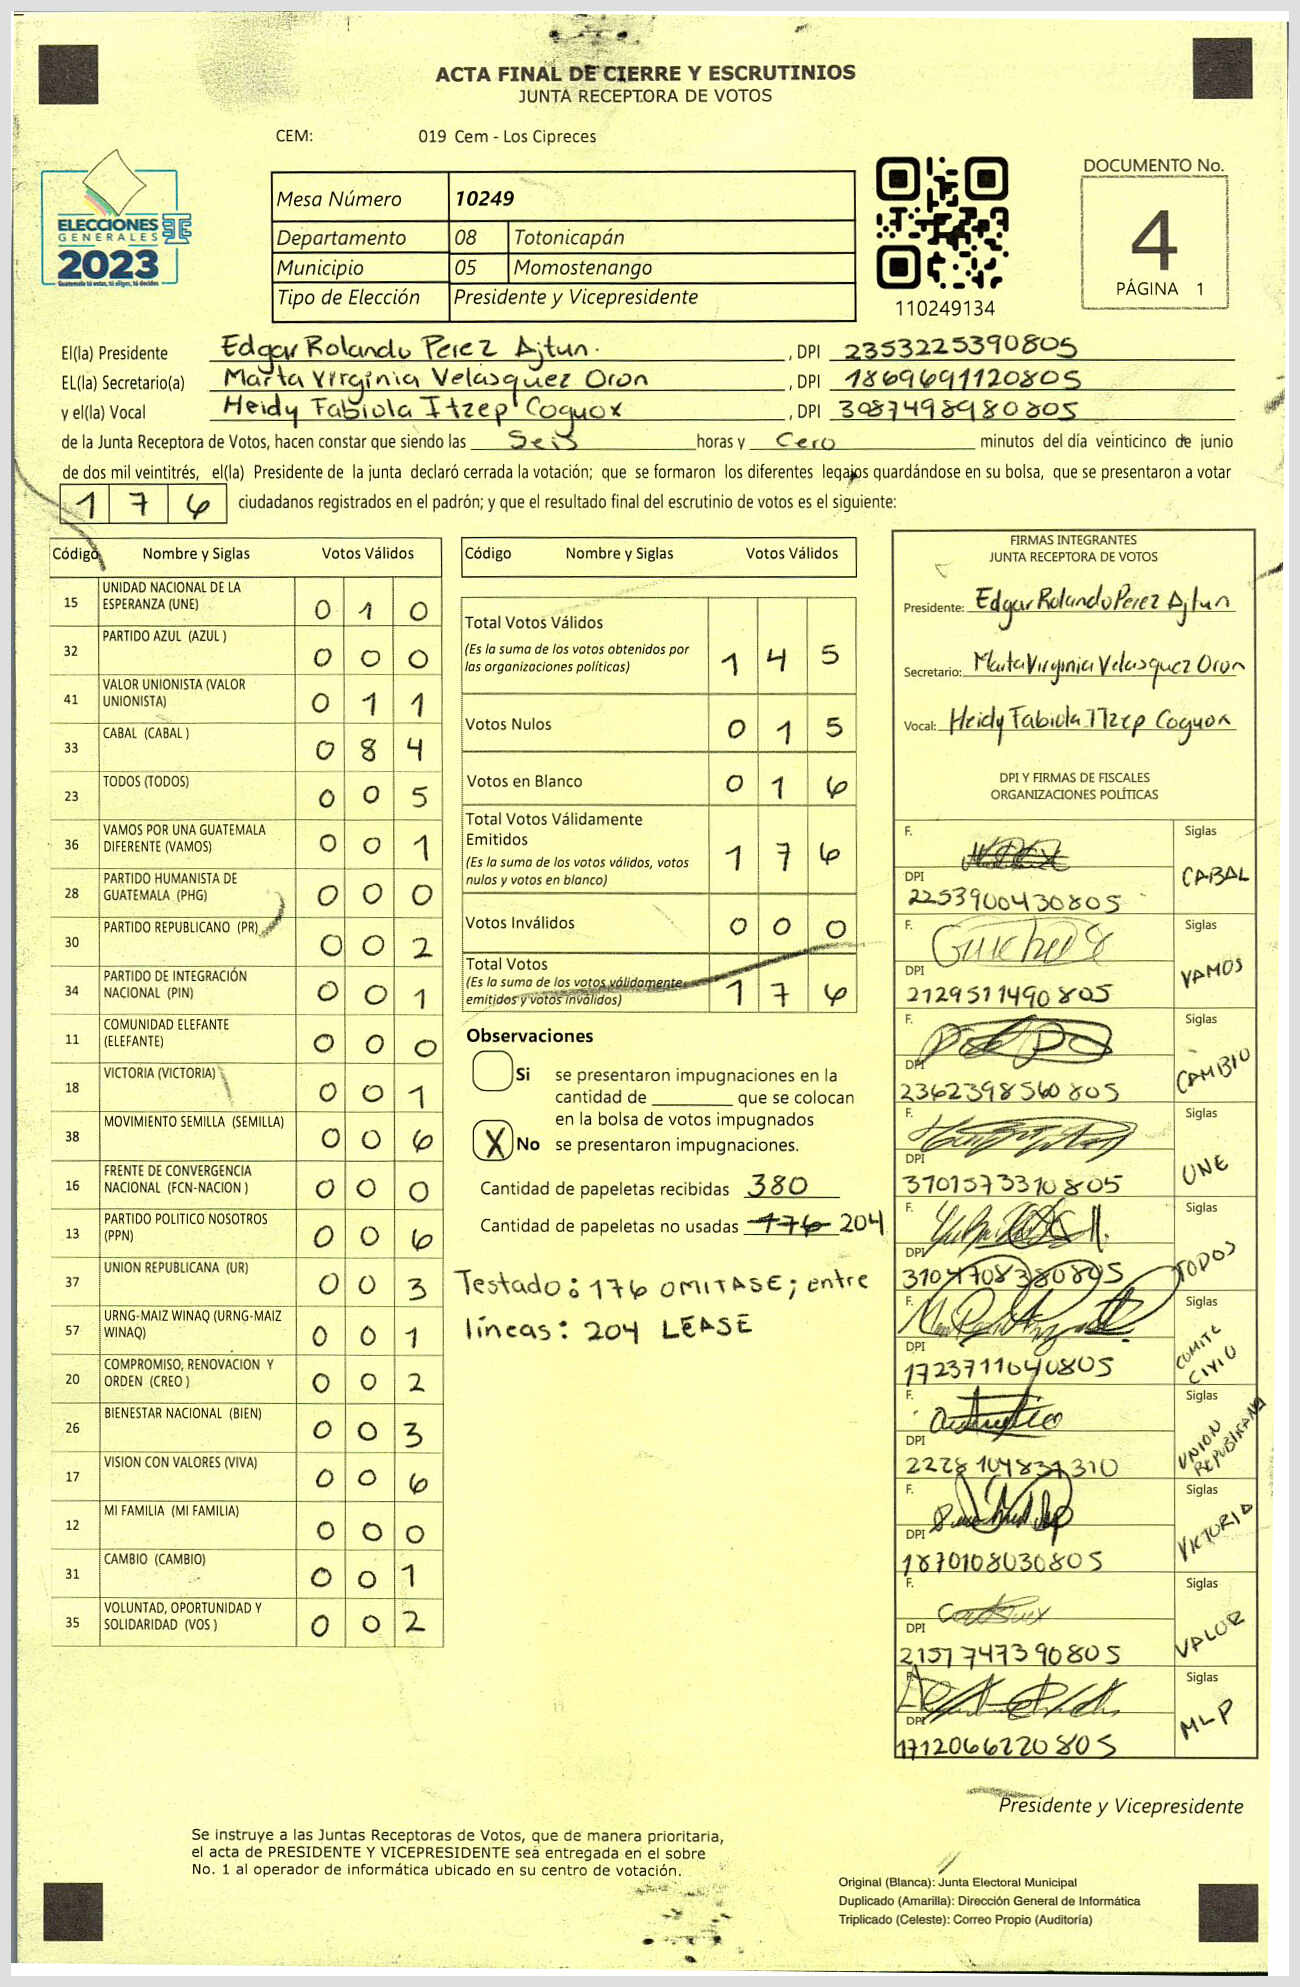 ACTA FINAL DE CIERRE Y ESCRUTINIOS
JUNTA RECEPTORA DE VOTOS
CEM: 019 Cem - Los Cipreces
ELECCIONES
GENERALES
2023
Guatemala tú votas, tú eliges, tú decides
Mesa Número 10249
Departamento 08 Totonicapán
Municipio 05 Momostenango
Tipo de Elección Presidente y Vicepresidente
110249134
DOCUMENTO No.
4
PÁGINA 1
El(la) Presidente Edgar Rolando Perez Ajtun. , DPI 2353225390805
EL(la) Secretario(a) Marta Virginia Velasquez Oron , DPI 1869691120805
y el(la) Vocal Heidy Fabiola Itzep Coguox , DPI 3087498980805
de la Junta Receptora de Votos, hacen constar que siendo las Seis horas y Cero minutos del día veinticinco de junio
de dos mil veintitrés, el(la) Presidente de la junta declaró cerrada la votación; que se formaron los diferentes legajos guardándose en su bolsa, que se presentaron a votar
1 7 6 ciudadanos registrados en el padrón; y que el resultado final del escrutinio de votos es el siguiente:
Código Nombre y Siglas Votos Válidos
15 UNIDAD NACIONAL DE LA
ESPERANZA (UNE) 0 1 0
32 PARTIDO AZUL (AZUL ) 0 0 0
41 VALOR UNIONISTA (VALOR
UNIONISTA) 0 1 1
33 CABAL (CABAL ) 0 8 4
23 TODOS (TODOS) 0 0 5
36 VAMOS POR UNA GUATEMALA
DIFERENTE (VAMOS) 0 0 1
28 PARTIDO HUMANISTA DE
GUATEMALA (PHG) 0 0 0
30 PARTIDO REPUBLICANO (PR) 0 0 2
34 PARTIDO DE INTEGRACIÓN
NACIONAL (PIN) 0 0 1
11 COMUNIDAD ELEFANTE
(ELEFANTE) 0 0 0
18 VICTORIA (VICTORIA) 0 0 1
38 MOVIMIENTO SEMILLA (SEMILLA) 0 0 6
16 FRENTE DE CONVERGENCIA
NACIONAL (FCN-NACION ) 0 0 0
13 PARTIDO POLITICO NOSOTROS
(PPN) 0 0 6
37 UNION REPUBLICANA (UR) 0 0 3
57 URNG-MAIZ WINAQ (URNG-MAIZ
WINAQ) 0 0 1
20 COMPROMISO, RENOVACION Y
ORDEN (CREO ) 0 0 2
26 BIENESTAR NACIONAL (BIEN) 0 0 3
17 VISION CON VALORES (VIVA) 0 0 6
12 MI FAMILIA (MI FAMILIA) 0 0 0
31 CAMBIO (CAMBIO) 0 0 1
35 VOLUNTAD, OPORTUNIDAD Y
SOLIDARIDAD (VOS ) 0 0 2
Código Nombre y Siglas Votos Válidos
Total Votos Válidos
(Es la suma de los votos obtenidos por
las organizaciones políticas) 1 4 5
Votos Nulos 0 1 5
Votos en Blanco 0 1 6
Total Votos Válidamente
Emitidos
(Es la suma de los votos válidos, votos
nulos y votos en blanco) 1 7 6
Votos Inválidos 0 0 0
Total Votos
(Es la suma de los votos válidamente
emitidos y votos inválidos) 1 7 6
Observaciones
Si se presentaron impugnaciones en la
cantidad de ________ que se colocan
en la bolsa de votos impugnados
X No se presentaron impugnaciones.
Cantidad de papeletas recibidas 380
Cantidad de papeletas no usadas 176 204
Testado: 176 OMITASE; entre
líneas: 204 LEASE
FIRMAS INTEGRANTES
JUNTA RECEPTORA DE VOTOS
Presidente: Edgar Rolando Perez Ajtun
Secretario: Marta Virginia Velasquez Oron
Vocal: Heidy Fabiola ITzep Coguox
DPI Y FIRMAS DE FISCALES
ORGANIZACIONES POLÍTICAS
F. Siglas
DPI CABAL
2253900430805
F. Siglas
DPI VAMOS
2129511490805
F. Siglas
DPI CAMBIO
2362398560805
F. Siglas
DPI UNE
3701573310805
F. Siglas
DPI TODOS
3104708380805
F. Siglas
DPI COMITE
CIVIO
1723711040805
F. Siglas
DPI UNION
REPUBLIKANA
2228104831310
F. Siglas
DPI VICTORIA
1870108030805
F. Siglas
DPI VALOR
2157747390805
F. Siglas
DPI MLP
1712066220805
Presidente y Vicepresidente
Se instruye a las Juntas Receptoras de Votos, que de manera prioritaria,
el acta de PRESIDENTE Y VICEPRESIDENTE sea entregada en el sobre
No. 1 al operador de informática ubicado en su centro de votación.
Original (Blanca): Junta Electoral Municipal
Duplicado (Amarilla): Dirección General de Informática
Triplicado (Celeste): Correo Propio (Auditoría)